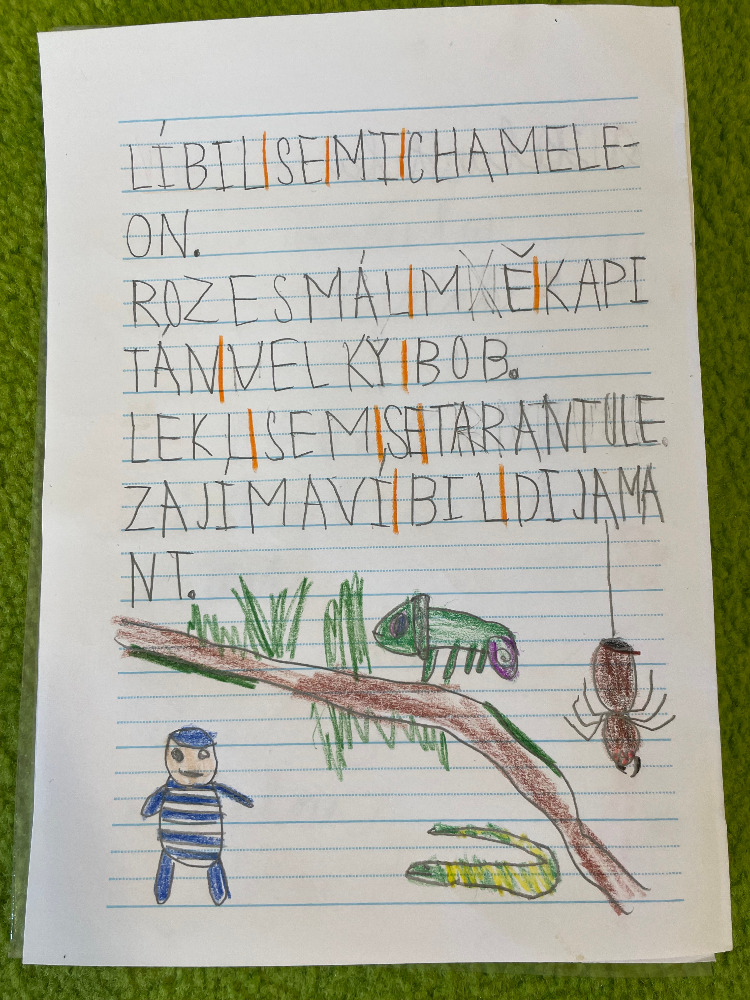 LÍBIL SE MI CHAMELE-
ON.
ROZESMÁL MĚ KAPI
TÁN VELKÝ BOB.
LEKL SEM SE TARANTULE.
ZAJÍMAVÍ BIL DIJAMA
NT.